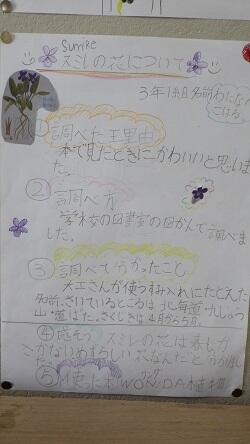 Sumire
スミレの花について
3年1組 名前わたなべ
こはる
① 調べた理由
本で見たときにかわいいと思いま
した。
② 調べ方
学校の図書室の図かんで調べま
した。
③ 調べてわかったこと
大工さんが使うすみ入れにたとえた
名前。さいているところは、北海道、九しゅう
山、道ばた。さくじきは4月から5月。
④ 感そう スミレの花は春しか
さかないめずらしい花なんだと
⑤ 使った本 WONDA
ワンダ